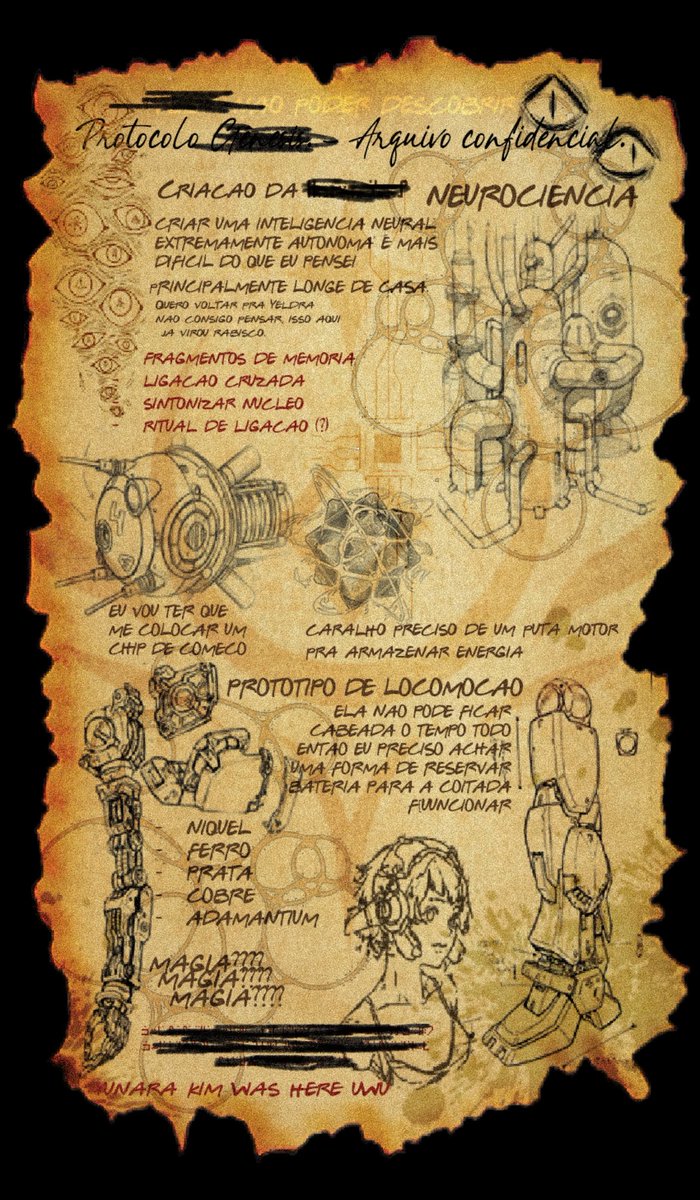 O PODER DESCOBRIR
Protocolo Gênesis. Arquivo confidencial.
CRIACAO DA NEUROCIENCIA
CRIAR UMA INTELIGENCIA NEURAL
EXTREMAMENTE AUTONOMA E MAIS
DIFICIL DO QUE EU PENSEI
PRINCIPALMENTE LONGE DE CASA
QUERO VOLTAR PRA YELDRA
NAO CONSIGO PENSAR, ISSO AQUI
JA VIROU RABISCO.
FRAGMENTOS DE MEMORIA
LIGACAO CRUZADA
SINTONIZAR NUCLEO
RITUAL DE LIGACAO (?)
EU VOU TER QUE
ME COLOCAR UM
CHIP DE COMECO
CARALHO PRECISO DE UM PUTA MOTOR
PRA ARMAZENAR ENERGIA
PROTOTIPO DE LOCOMOCAO
ELA NAO PODE FICAR
CABEADA O TEMPO TODO
ENTAO EU PRECISO ACHAR
UMA FORMA DE RESERVAR
BATERIA PARA A COITADA
FUUNCIONAR
- NIQUEL
- FERRO
- PRATA
- COBRE
- ADAMANTIUM
MAGIA????
MAGIA????
MAGIA????
UNARA KIM WAS HERE UWU